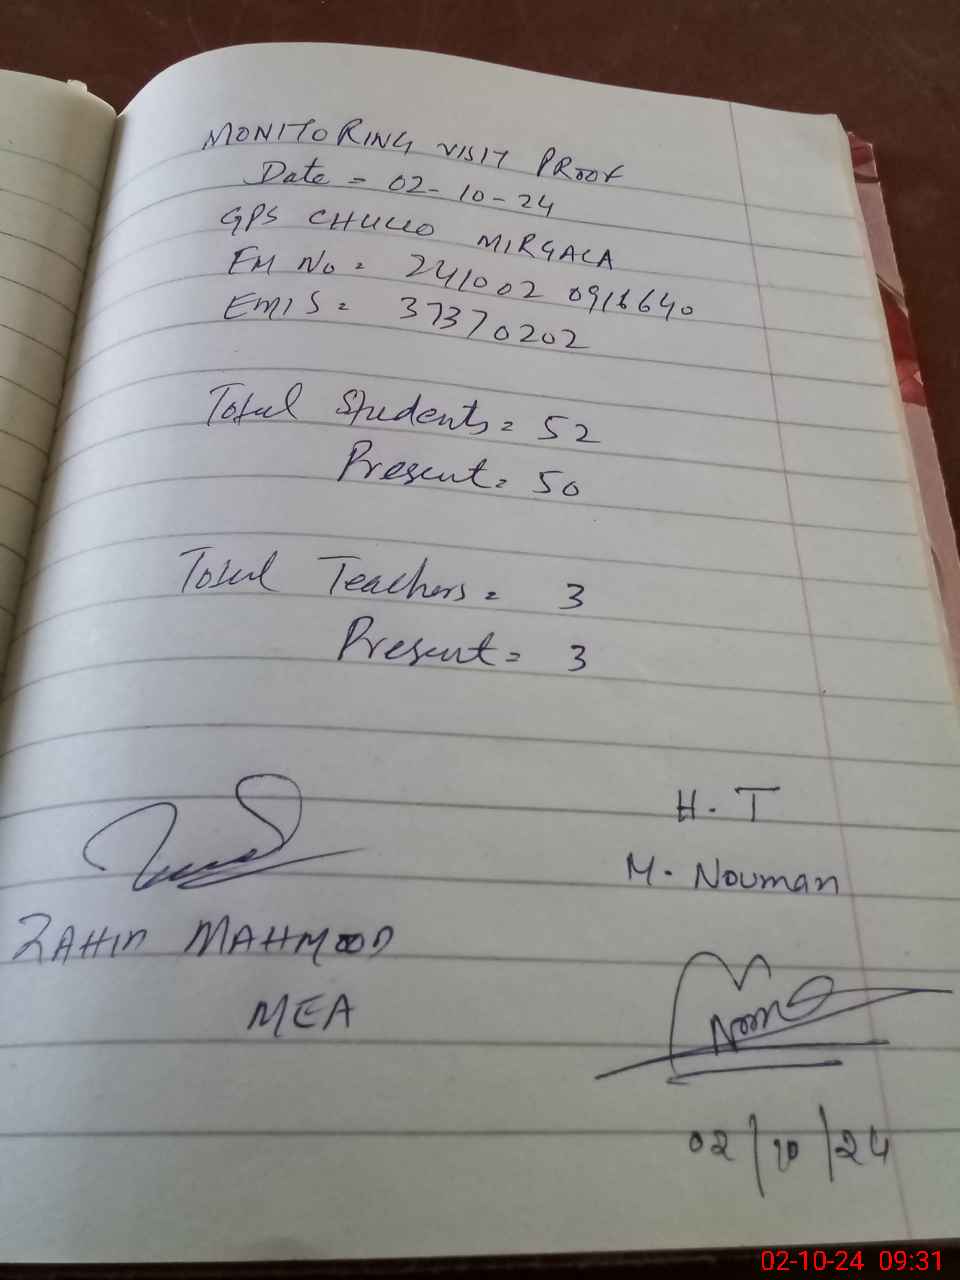 MONITORING VISIT PROOF
Date = 02-10-24
GPS CHULLO MIRGALA
EM No = 241002 0916640
EMIS = 37370202
Total Students = 52
Present = 50
Total Teachers = 3
Present = 3
H. T
M. Nouman
ZAHID MAHMOOD
MEA
02/10/24
02-10-24 09:31